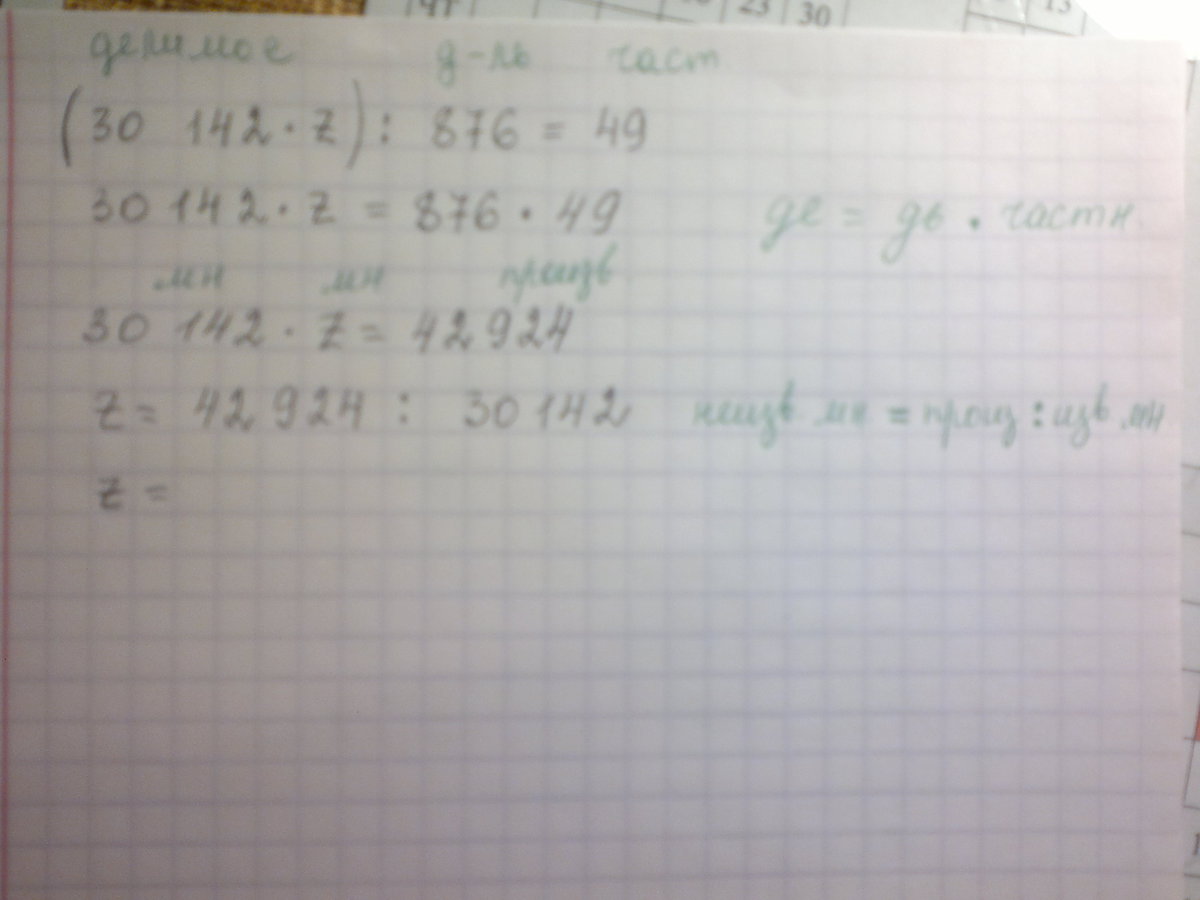 47 23 30 13
делимое д-ль част
(30 142 · z) : 876 = 49
30 142 · z = 876 · 49 де = дь · частн.
мн мн произв
30 142 · z = 42 924
z = 42 924 : 30 142 неизв мн = произ : изв. мн
z =